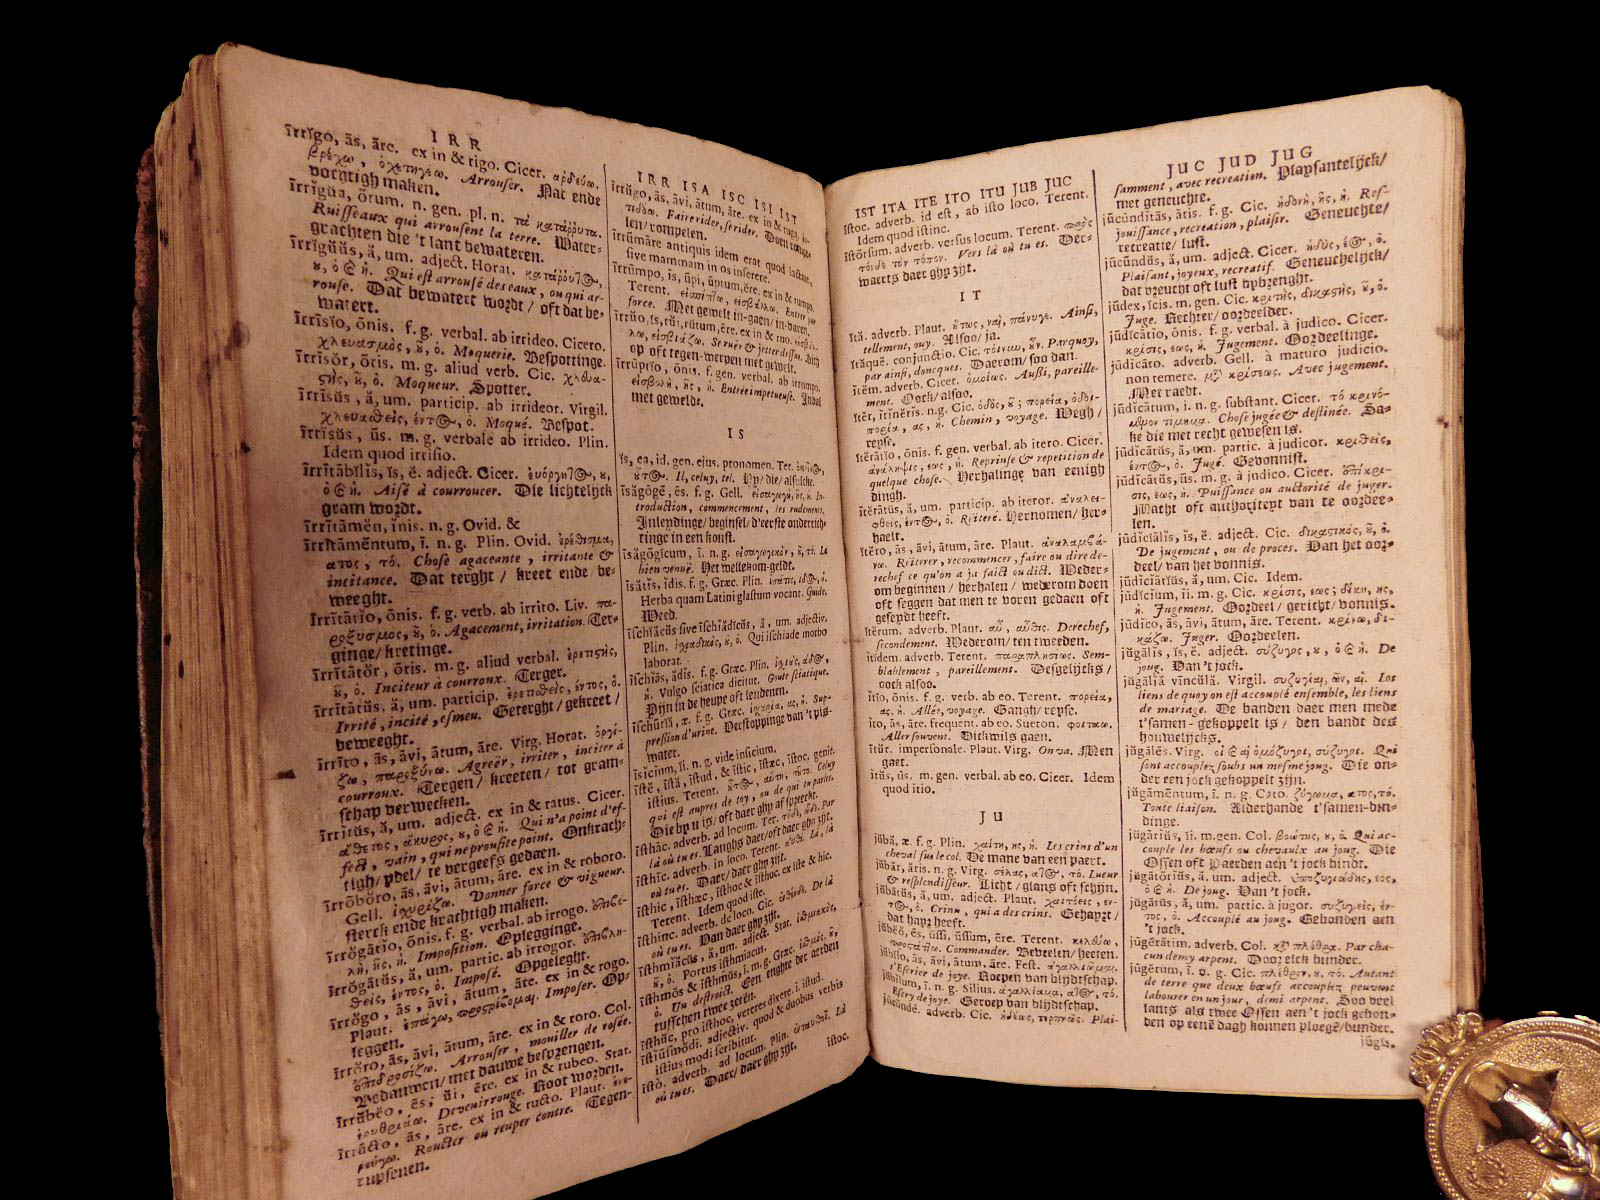 I R R
īrrĭgo, ās, āre. ex in & rigo. Cicer. ἀρδεύω,
βρέχω, ὀχετηγέω. Arrouser. Nat ende
vochtigh maken.
īrrĭgŭa, ōrum. n. gen. pl. n. τὰ κατάρρυτα.
Ruisseaux qui arrousent la terre. Water-
grachten die 't lant bewateren.
īrrĭgŭŭs, ă, um. adject. Horat.
Qui est arrousé des eaux, ou qui ar-
rouse. Dat bewatert wordt / oft dat be-
watert.
īrrīsĭo, ōnis. f. g. verbal. ab irrideo. Cicero.
χλευασμὸς, ȣ, ὁ. Moquerie. Bespottinge.
īrrīsŏr, ōris. m. g. aliud verb. Cic. χλευα-
ςὴς, ȣ, ὁ. Moqueur. Spotter.
īrrīsŭs, ă, um. particip. ab irrideor. Virgil.
χλευαθεὶς, ὁ. Moqué. Bespot.
īrrīsŭs, ūs. m. g. verbale ab irrideo. Plin.
Idem quod irrisio.
īrrītābĭlis, ĭs, ĕ. adject. Cicer.
Aisé à courroucer. Die lichtelijck
gram wordt.
īrrītāmĕn, ĭnis. n. g. Ovid. &
īrrītāmēntum, ī. n. g. Plin. Ovid. ἐρέθισμα,
ατος, τό. Chose agaceante, irritante &
incitance. Dat terght / kreet ende be-
weeght.
īrrītātĭo, ōnis. f. g. verb. ab irrito. Liv. πα-
ροξυσμὸς, ȣ, ὁ. Agacement, irritation. Ter-
ginge / kretinge.
īrrītātŏr, ōris. m. g. aliud verbal.
ȣ, ὁ. Inciteur à courroux. Terger.
īrrītātŭs, ă, um. particip.
Irrité, incité, esmeu. Geterght / gekreet /
beweeght.
īrrīto, ās, āvi, ātum, āre. Virg. Horat. ὀργί-
ζω, παροξύνω. Agreër, irriter, inciter à
courroux. Tergen / kreeten / tot gram-
schap verwecken.
īrrĭtŭs, ă, um. adject. ex in & ratus. Cicer.
ἄθετος, ἄκυρος, ȣ, ὁ & ἡ. Qui n'a point d'ef-
fect, vain, qui ne proufite point. Onkrach-
tigh / ydel / te vergeefs gedaen.
īrrōbŏro, ās, āvi, ātum, āre. ex in & roboro.
Gell. ἰσχυρίζω. Donner force & vigueur.
sterck ende krachtigh maken.
īrrŏgātĭo, ōnis. f. g. verbal. ab irrogo.
Imposition. Oplegginge.
īrrŏgātŭs, ă, um. partic. ab irrogor.
ὁ. Imposé. Opgeleght.
īrrŏgo, ās, āvi, ātum, āre. ex in & rogo.
Plaut. Imposer. Op-
leggen.
īrrōro, ās, āvi, ātum, āre. ex in & roro. Col.
Arrouser, mouiller de rosée.
Bedauwen / met dauwe besprengen.
īrrŭbĕo, ēs, ŭi, ēre. ex in & rubeo. Stat.
Devenir rouge. Root worden.
īrrūcto, ās, āre. ex in & ructo. Plaut.
Roucter ou reuper contre. Tegen-
rupsenen.
IRR ISA ISC ISI IST
īrrūgo, ās, āvi, ātum, āre. ex in & rugo.
Faire rider, serider.
len / rompelen.
īrrūmāre antiquis idem erat quod lactare,
sive mammam in os inserere.
īrrūmpo, is, ūpi, ūptum, ĕre. ex in & rumpo.
Terent. Entrer par
force. Met gewelt in-gaen / in-baren.
īrrŭo, ĭs, rŭi, rŭtum, ĕre. ex in & ruo.
Se ruër & jetter dessus.
op oft tegen-werpen met gewelt.
īrrūptĭo, ōnis. f. gen. verbal. ab irrumpo.
Entrée impetueuse. Inbal
met gewelde.
I S
ĭs, ea, id. gen. ejus. pronomen. Ter.
Il, celuy, tel. Hy / die / alsulcke.
īsăgōgē, ēs. f. g. Gell. εἰσαγωγὴ, ῆς, ἡ. In-
troduction, commencement, les rudements.
Inleydinge / beginsel / d'eerste onderrich-
tinge in een konst.
īsăgōgĭcum, i. n. g. εἰσαγωγικὸν, ȣ, τό. La
bien venuë. Het wellekom-geldt.
īsătĭs, ĭdis. f. g. Græc. Plin. ἰσάτις, ιδ, ἡ.
Herba quam Latini glastum vocant. Guide.
Weed.
īschĭăcŭs sive īschĭădĭcŭs, ă, um. adjectiv.
Plin. ἰσχιαδικὸς, ȣ, ὁ. Qui ischiade morbo
laborat.
īschĭās, ădis. f. g. Græc. Plin.
ἡ. Vulgo sciatica dicitur. Goute sciatique.
Pijn in de heupe oft lendenen.
īschūrĭă, æ. f. g. Græc. ἰσχυρία, ας, ἡ. Sup-
pression d'urine. Verstoppinge van 't pis-
water.
īsĭcĭum, ĭi. n. g. vide insicium.
īstĕ, īstă, īstud, & īstic, īstæc, īstoc. genit.
istius. Terent.
qui est aupres de toy, ou de qui tu parles.
Die by u is / oft daer ghy af spreeckt.
īsthāc. adverb. ad locum. Ter. Par
là où tu es. Langhs daer / oft daer ghy zijt.
īsthīc. adverb. in loco. Terent. Là, là
où tu es. Daer / daer ghy zijt.
īsthic, īsthæc, īsthoc & īsthuc. ex iste & hic.
Terent. Idem quod iste.
īsthinc. adverb. de loco. Cic. De là
où tu es. Van daer ghy zijt.
īsthmĭăcŭs, ă, um. adject. Stat.
ȣ, ὁ. Portus isthmiacus.
īsthmŏs & īsthmŭs, i. m. g. Græc. ἰσθμὸς, ȣ,
ὁ. Un destroict. Een enghte der aerden
tusschen twee zeeën.
īsthūc, pro isthoc, veteres dixere. i. istud.
īstīusmŏdi. adjectiv. quod & duobus verbis
istius modi scribitur.
īstō. adverb. ad locum. Plin. Là
où tu es. Daer / daer ghy zijt.
īstoc.
IST ITA ITE ITO ITU JUB JUC
īstoc. adverb. id est, ab isto loco. Terent.
Idem quod istinc.
īstōrsum. adverb. versus locum. Terent. πρὸς
τόνδε τὸν τόπον. Vers là où tu es. Der-
waerts daer ghy zijt.
I T
ĭtă. adverb. Plaut. ȣτως, ναὶ, πάνυγε. Ainsi,
tellement, ouy. Alsoo / ja.
ĭtăquĕ. conjunctio. Cic. τοίνυν, ȣν. Parquoy,
par ainsi, doncques. Daerom / soo dan.
ĭtĕm. adverb. Cicer. ὁμοίως. Aussi, pareille-
ment. Oock / alsoo.
ĭtĕr, ĭtĭnĕris. n. g. Cic. ὁδὸς, ȣ; πορεία, ὁδοι-
πορία, ας, ἡ. Chemin, voyage. Wegh /
reyse.
ĭtĕrātĭo, ōnis. f. gen. verbal. ab itero. Cicer.
ἀνάληψις, εως, ἡ. Reprinse & repetition de
quelque chose. Verhalinge van eenigh
dingh.
ĭtĕrātŭs, ă, um. particip. ab iteror. ἀναλει-
φθεὶς, ὁ. Réiteré. Hernomen / her-
haelt.
ĭtĕro, ās, āvi, ātum, āre. Plaut. ἀναλαμβά-
νω. Réiterer, recommencer, faire ou dire de-
rechef ce qu'on a ja faict ou dict. Weder-
om beginnen / herhalen / wederom doen
oft seggen dat men te voren gedaen oft
geseydt heeft.
ĭtĕrum. adverb. Plaut. αὖ, αὖθις. Derechef,
secondement. Wederom / ten tweeden.
ĭtĭdem. adverb. Terent. παραπλησίως. Sem-
blablement, pareillement. Desgelijcks /
oock alsoo.
ĭtĭo, ōnis. f. g. verb. ab eo. Terent. πορεία,
ας, ἡ. Allée, voyage. Gangh / reyse.
ĭto, ās, āre. frequent. ab eo. Sueton. φοιτάω.
Aller souvent. Dickwils gaen.
ītŭr. impersonale. Plaut. Virg. On va. Men
gaet.
ĭtŭs, ūs. m. gen. verbal. ab eo. Cicer. Idem
quod itio.
J U
jŭbă, æ. f. g. Plin. χαίτη, ης, ἡ. Les crins d'un
cheval sus le col. De mane van een paert.
jŭbăr, ăris. n. g. Virg. σέλας, τό. Lueur
& resplendisseur. Licht / glans oft schijn.
jŭbātŭs, ă, um. adject. Plaut.
ὁ. Crinu, qui a des crins. Gehayrt /
dat hayr heeft.
jŭbĕo, ēs, ūssi, ūssum, ēre. Terent. κελεύω,
προστάττω. Commander. Beveelen / heeten.
jūbĭlo, ās, āvi, ātum, āre. Fest. ἀγαλλιάομαι.
s'Escrier de joye. Roepen van blijdtschap.
jūbĭlum, i. n. g. Silius. ἀγαλλίαμα, τό.
Escry de joye. Geroep van blijdtschap.
jūcūndē. adverb. Cic. ἡδέως, τερπνῶς. Plai-
JUC JUD JUG
samment, avec recreation. Playsantelijck /
met geneuchte.
jūcūndĭtās, ātis. f. g. Cic. ἡδονὴ, ῆς, ἡ. Res-
jouissance, recreation, plaisir. Geneuchte /
recreatie / lust.
jūcūndŭs, ă, um. adject. Cicer. ἡδὺς, ὁ.
Plaisant, joyeux, recreatif. Geneuchelijck /
dat vreucht oft lust bybrenght.
jūdex, ĭcis. m. gen. Cic. κριτὴς, δικαςὴς, ȣ, ὁ.
Juge. Rechter / oordeelder.
jūdĭcātĭo, ōnis. f. g. verbal. à judico. Cicer.
κρίσις, εως, ἡ. Jugement. Oordeelinge.
jūdĭcāto. adverb. Gell. à maturo judicio.
non temere. κρίσεως. Avec jugement.
Met raedt.
jūdĭcātum, i. n. g. substant. Cicer. τὸ κρινό-
μενον τίμημα. Chose jugée & destinée. Sa-
ke die met recht gewesen is.
jūdĭcātŭs, ă, um. partic. à judicor. κριθεὶς,
ὁ. Jugé. Gevonnist.
jūdĭcātŭs, ūs. m. g. à judico. Cicer. ἐπίκρι-
σις, εως, ἡ. Puissance ou auctorité de juger.
Macht oft authoriteyt van te oordee-
len.
jūdĭcĭālĭs, ĭs, ĕ. adject. Cic. δικαςικὸς, ȣ, ὁ.
De jugement, ou de proces. Van het oor-
deel / van het vonnis.
jūdĭcĭārĭŭs, ă, um. Cic. Idem.
jūdĭcĭum, ĭi. n. g. Cic. κρίσις, εως; δίκη, ης,
ἡ. Jugement. Oordeel / gericht / vonnis.
jūdĭco, ās, āvi, ātum, āre. Terent. κρίνω, δι-
κάζω. Juger. Oordeelen.
jŭgālĭs, ĭs, ĕ. adject. σύζυγος, ȣ, ὁ & ἡ. De
joug. Van 't jock.
jŭgālĭă vīncŭlă. Virgil. συζυγίαι, ῶν, αἱ. Les
liens de quoy on est accouplé ensemble, les liens
de mariage. De banden daer men mede
t'samen-gekoppelt is / den bandt des
houwelijcks.
jŭgālēs. Virg. οἱ & αἱ ὁμόζυγοι, σύζυγοι. Qui
sont accouplez soubs un mesme joug. Die on-
der een jock gekoppelt zijn.
jŭgāmēntum, i. n. g. Cato. ζύγωμα, ατος, τό.
Toute liaison. Alderhande t'samen-bin-
dinge.
jŭgārĭŭs, ĭi. m. gen. Col. βοώτης, ȣ, ὁ. Qui ac-
couple les bœufs ou chevaulx au joug. Die
Ossen oft Paerden aen 't jock bindt.
jŭgātōrĭŭs, ă, um. adject. ὑποζυγιώδης, εος,
ὁ & ἡ. De joug. Van 't jock.
jŭgātŭs, ă, um. partic. à jugor. συζυγεὶς, έν-
τος, ὁ. Accouplé au joug. Gebonden aen
't jock.
jūgĕrātim. adverb. Col. πλέθρα. Par cha-
cun demy arpent. Door elck bunder.
jūgĕrum, i. n. g. Cic. πλέθρον, ȣ, τό. Autant
de terre que deux bœufs accouplez peuvent
labourer en un jour, demi arpent. Soo veel
lants als twee Ossen aen 't jock gebon-
den op eenē dagh konnen ploegē / bunder.
jūgis.